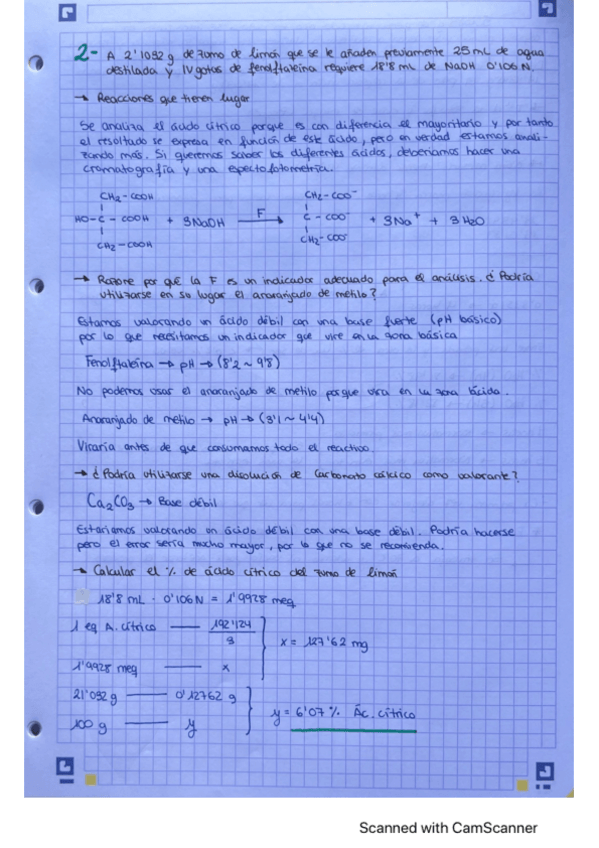 2- A 2'1032 g de zumo de limón que se le añaden previamente 25 mL de agua
destilada y IV gotas de fenolftaleína requiere 18'8 mL de NaOH 0'106 N.
→ Reacciones que tienen lugar
Se analiza el ácido cítrico porque es con diferencia el mayoritario y por tanto
el resultado se expresa en función de este ácido, pero en verdad estamos anali-
zando más. Si queremos saber los diferentes ácidos, deberíamos hacer una
cromatografía y una espectofotometría.
CH2-COOH CH2-COO-
HO-C-COOH + 3NaOH F→ C-COO- + 3Na+ + 3H2O
CH2-COOH CH2-COO-
→ Razone por qué la F es un indicador adecuado para el análisis. ¿Podría
utilizarse en su lugar el anaranjado de metilo?
Estamos valorando un ácido débil con una base fuerte (pH básico)
por lo que necesitamos un indicador que vire en la zona básica
Fenolftaleína → pH → (8'2 ~ 9'8)
No podemos usar el anaranjado de metilo porque vira en la zona ácida.
Anaranjado de metilo → pH → (3'1 ~ 4'4)
Viraría antes de que consumamos todo el reactivo.
→ ¿Podría utilizarse una disolución de carbonato cálcico como valorante?
Ca2CO3 → Base débil
Estaríamos valorando un ácido débil con una base débil. Podría hacerse
pero el error sería mucho mayor, por lo que no se recomienda.
→ Calcular el % de ácido cítrico del zumo de limón
18'8 mL · 0'106 N = 1'9928 meq
1 eq A. cítrico — 192'124
3
x = 127'62 mg
1'9928 meq — x
21'032 g — 0'12762 g
y = 6'07 % Ác. cítrico
100 g — y
Scanned with CamScanner